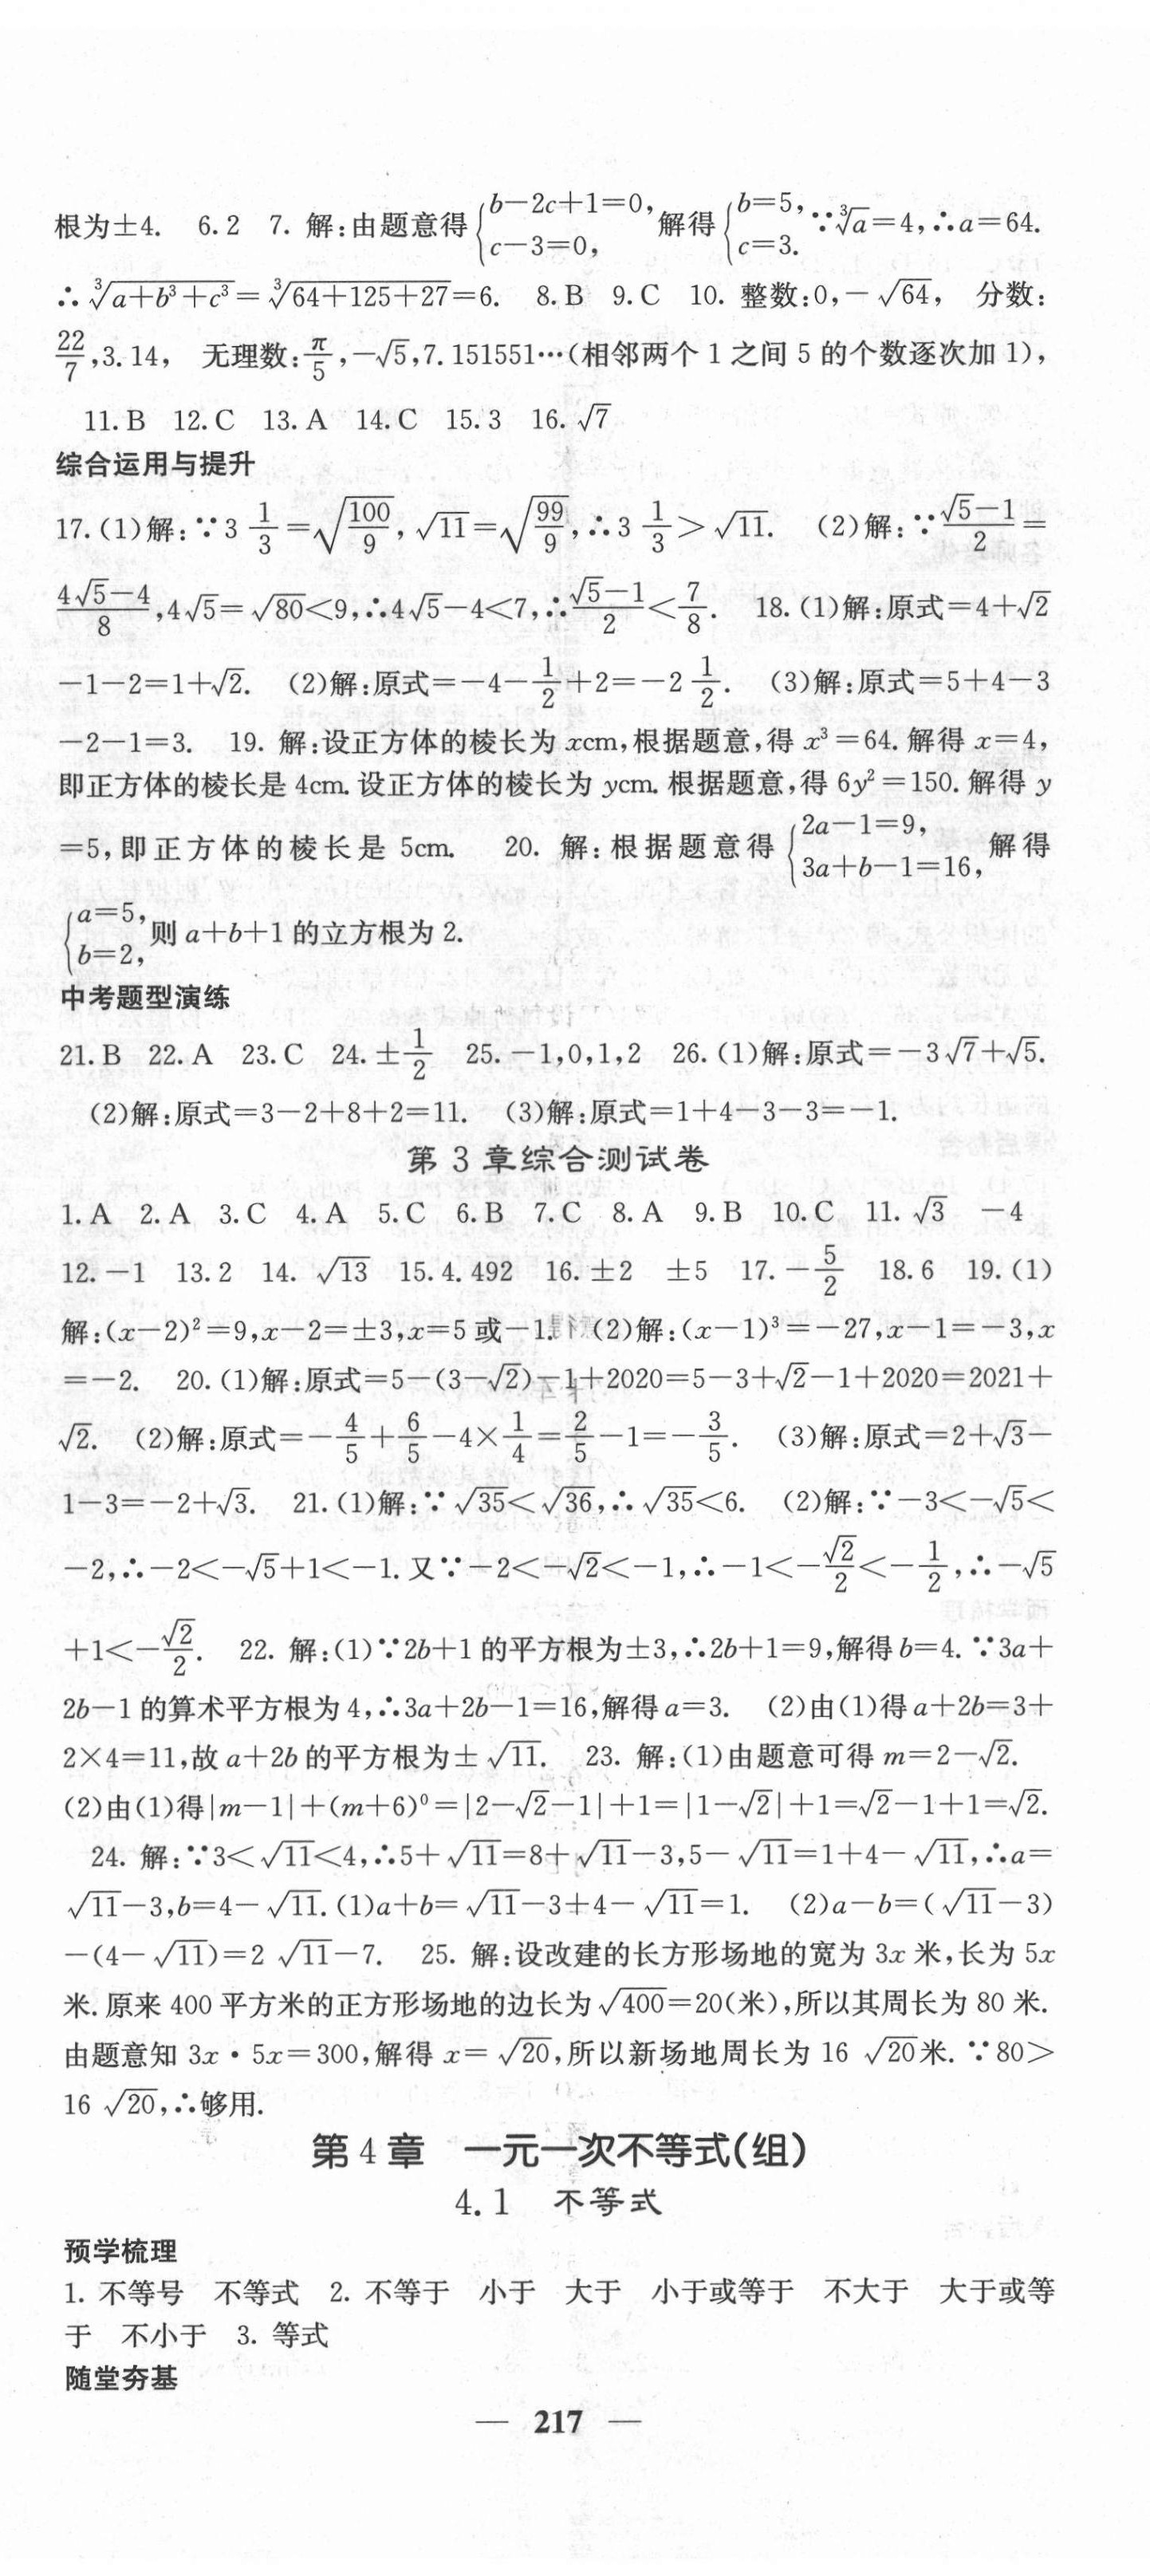 根为±4.　6.2　7. 解:由题意得{b−2c+1=0, c−3=0, 解得{b=5, c=3. ∵∛a=4,∴a=64.
∴∛(a+b³+c³)=∛(64+125+27)=6.　8.B　9.C　10. 整数:0,−√64,　分数:
22/7,3.14,　无理数:π/5,−√5,7.151551…(相邻两个 1 之间 5 的个数逐次加 1),
11.B　12.C　13.A　14.C　15.3　16.√7
综合运用与提升
17.(1)解:∵3 1/3=√(100/9),√11=√(99/9),∴3 1/3>√11.　(2)解:∵(√5−1)/2=
(4√5−4)/8,4√5=√80<9,∴4√5−4<7,∴(√5−1)/2<7/8.　18.(1)解:原式=4+√2
−1−2=1+√2.　(2)解:原式=−4−1/2+2=−2 1/2.　(3)解:原式=5+4−3
−2−1=3.　19. 解:设正方体的棱长为 xcm,根据题意,得 x³=64.解得 x=4,
即正方体的棱长是 4cm.设正方体的棱长为 ycm.根据题意,得 6y²=150.解得 y
=5,即正方体的棱长是 5cm.　20. 解:根据题意得{2a−1=9, 3a+b−1=16, 解得
{a=5, b=2, 则 a+b+1 的立方根为 2.
中考题型演练
21.B　22.A　23.C　24.±1/2　25.−1,0,1,2　26.(1)解:原式=−3√7+√5.
(2)解:原式=3−2+8+2=11.　(3)解:原式=1+4−3−3=−1.
第 3 章综合测试卷
1.A　2.A　3.C　4.A　5.C　6.B　7.C　8.A　9.B　10.C　11.√3　−4
12.−1　13.2　14.√13　15.4.492　16.±2　±5　17.−5/2　18.6　19.(1)
解:(x−2)²=9,x−2=±3,x=5 或−1.　(2)解:(x−1)³=−27,x−1=−3,x
=−2.　20.(1)解:原式=5−(3−√2)−1+2020=5−3+√2−1+2020=2021+
√2.　(2)解:原式=−4/5+6/5−4×1/4=2/5−1=−3/5.　(3)解:原式=2+√3−
1−3=−2+√3.　21.(1)解:∵√35<√36,∴√35<6.　(2)解:∵−3<−√5<
−2,∴−2<−√5+1<−1.又∵−2<−√2<−1,∴−1<−√2/2<−1/2,∴−√5
+1<−√2/2.　22. 解:(1)∵2b+1 的平方根为±3,∴2b+1=9,解得 b=4.∵3a+
2b−1 的算术平方根为 4,∴3a+2b−1=16,解得 a=3.　(2)由(1)得 a+2b=3+
2×4=11,故 a+2b 的平方根为±√11.　23. 解:(1)由题意可得 m=2−√2.
(2)由(1)得|m−1|+(m+6)⁰=|2−√2−1|+1=|1−√2|+1=√2−1+1=√2.
24. 解:∵3<√11<4,∴5+√11=8+√11−3,5−√11=1+4−√11,∴a=
√11−3,b=4−√11.(1)a+b=√11−3+4−√11=1.　(2)a−b=(√11−3)
−(4−√11)=2√11−7.　25. 解:设改建的长方形场地的宽为 3x 米,长为 5x
米.原来 400 平方米的正方形场地的边长为√400=20(米),所以其周长为 80 米.
由题意知 3x·5x=300,解得 x=√20,所以新场地周长为 16√20米.∵80>
16√20,∴够用.
第 4 章　一元一次不等式(组)
4.1　不等式
预学梳理
1. 不等号　不等式　2. 不等于　小于　大于　小于或等于　不大于　大于或等
于　不小于　3. 等式
随堂夯基
— 217 —